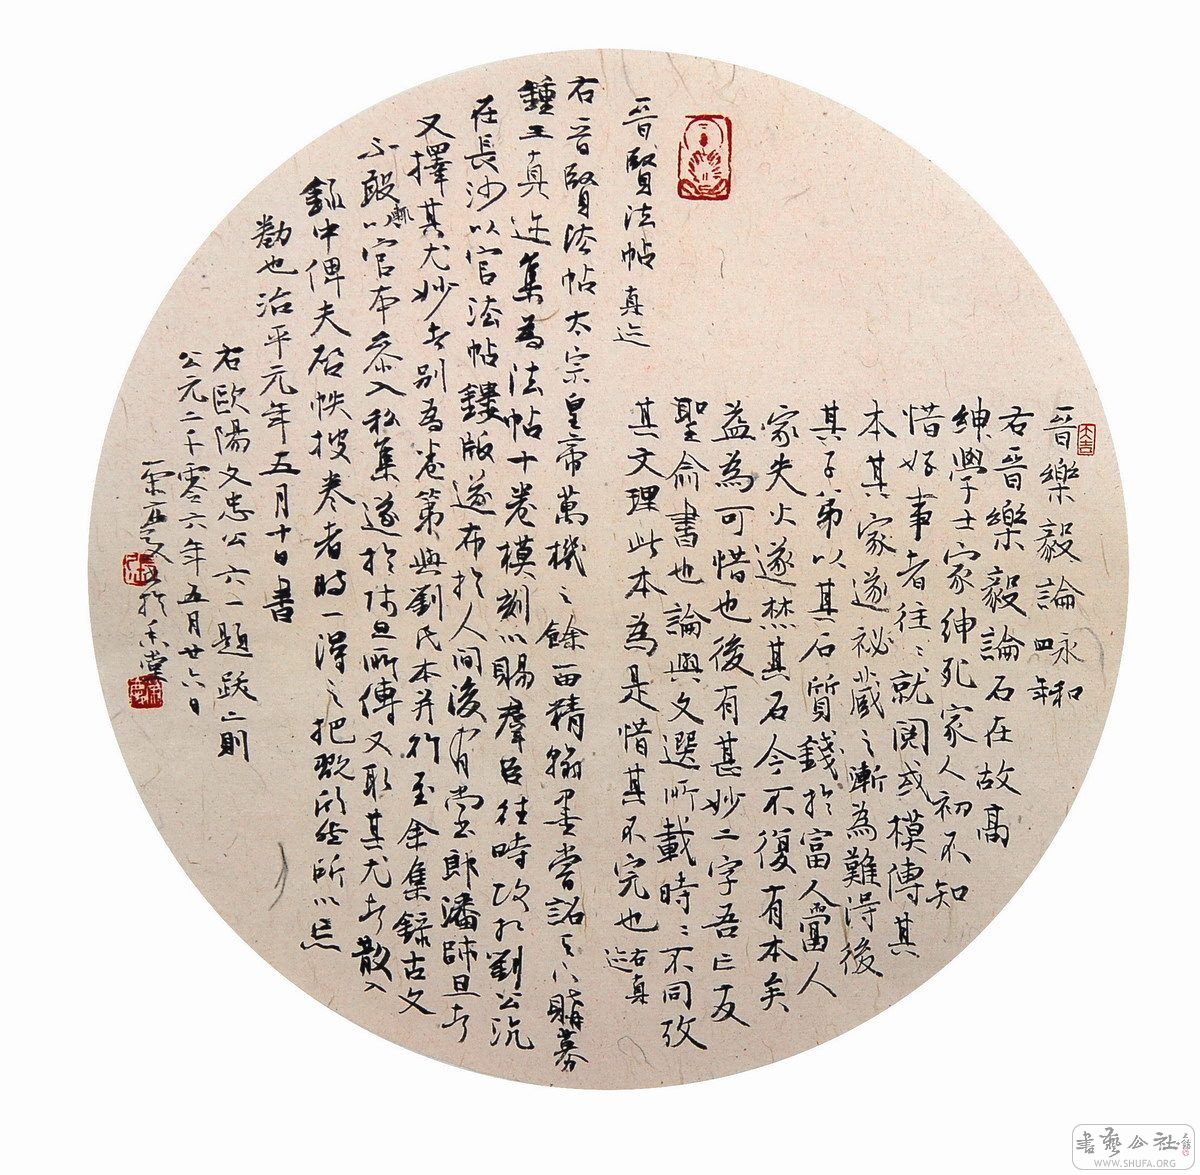 晉樂毅論永和
四年
右晉樂毅論石在故高
紳學士家紳死家人初不知
惜好事者往〻就閱或模傳其
本其家遂祕藏之漸為難得後
其子弟以其石質錢於富人富人
家失火遂焚其石今不復有本矣
益為可惜也後有甚妙二字吾亡友
聖俞書也論與文選所載時〻不同攷
其文理此本為是惜其不完也
右真
迹
晉賢法帖 真迹
右晉賢法帖太宗皇帝萬機之餘留精翰墨嘗詔天下購募
鍾王真迹集為法帖十卷模刻以賜羣臣往時故相劉公沆
在長沙以官法帖鏤版遂布於人間後有尚書郎潘師旦者
又擇其尤妙者別為卷第與劉氏本并行至余集錄古文
不敢輒以官本參入私集遂於師旦所傳又取其尤者散入
錄中俾夫啟帙披卷者時一得之把翫欣然所以忘
勌也治平元年五月十日書
右歐陽文忠公六一題跋二則
公元二千零六年五月廿六日
大吉
書藝公社
WWW.SHUFA.ORG